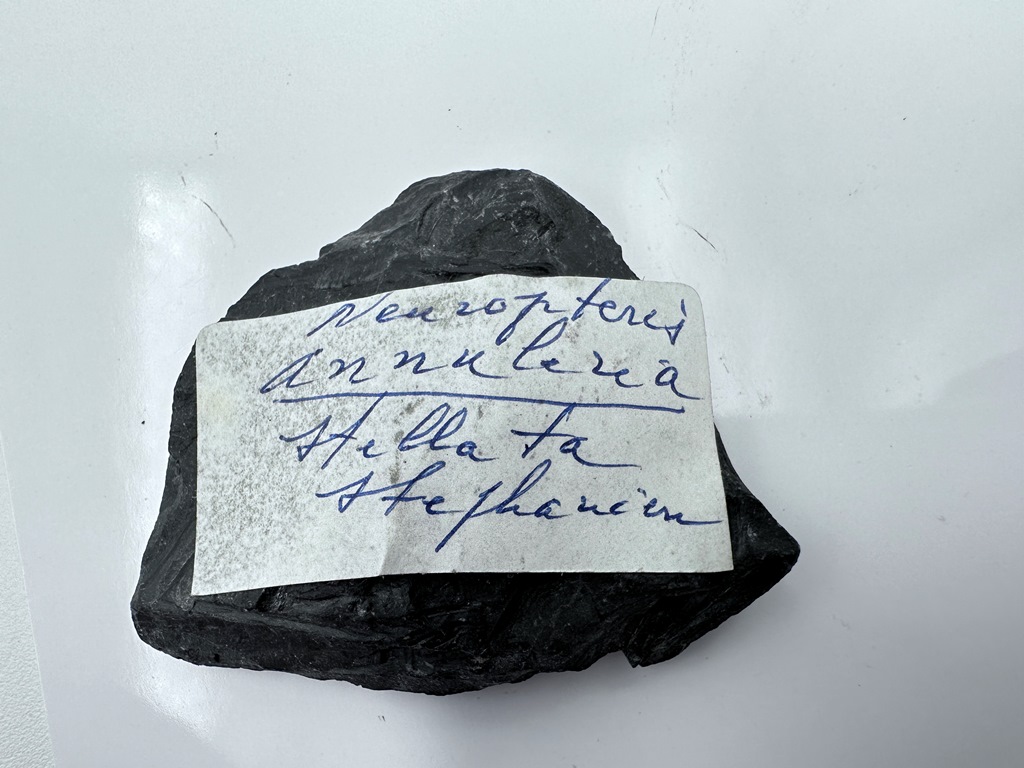 Neuropteris
annuleria
stella ta
stephanien